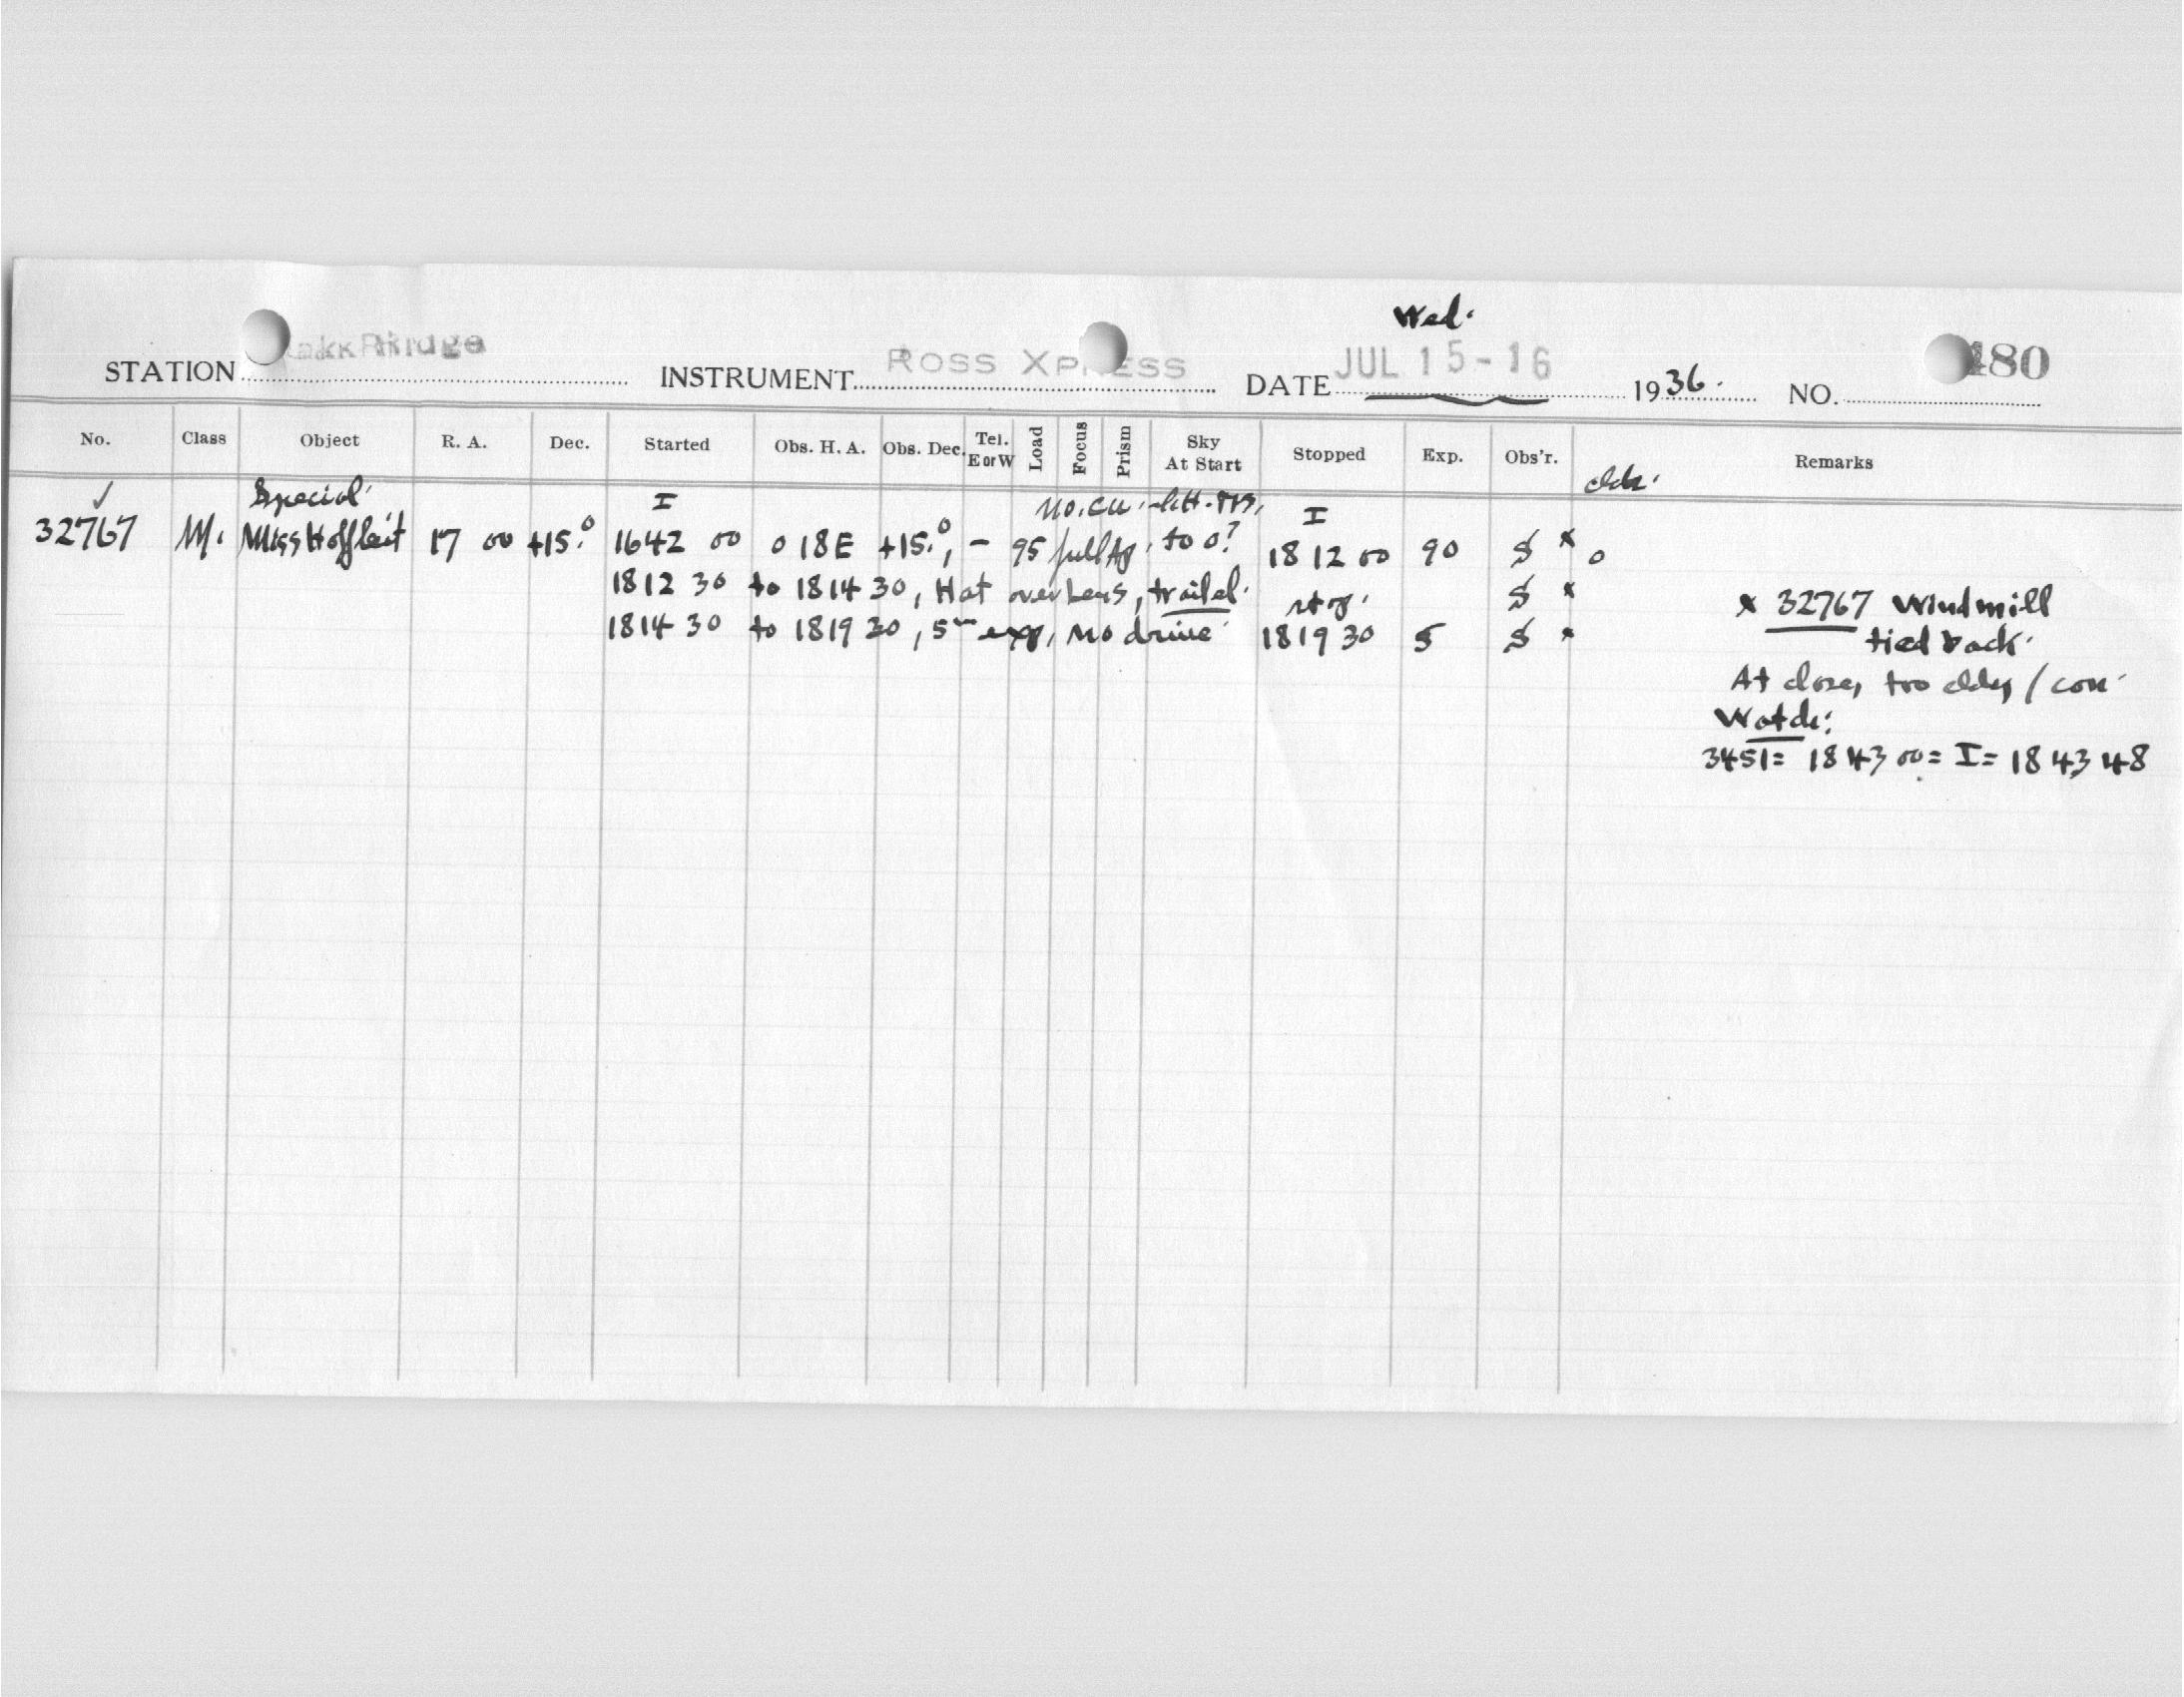 Wed.
STATION Oak Ridge INSTRUMENT ROSS XPRESS DATE JUL 15-16 1936. NO. 480
No. Class Object R. A. Dec. Started Obs. H. A. Obs. Dec. Tel. E or W Load Focus Prism Sky At Start Stopped Exp. Obs'r. Remarks
Special I I
32767 M. Miss Hoffleit 17 00 +15.° 1642 00 0 18E +15.°, - 95 full Ap. to 0? 1812 00 90 S x 0
1812 30 to 1814 30, Hat over Lens, trailed. S x
1814 30 to 1819 30, 5m exp, No drive 1819 30 5 S x
x 32767 Windmill
tied back.
At close, too cldy /
Watch:
3451= 18 43 00= I= 18 43 48